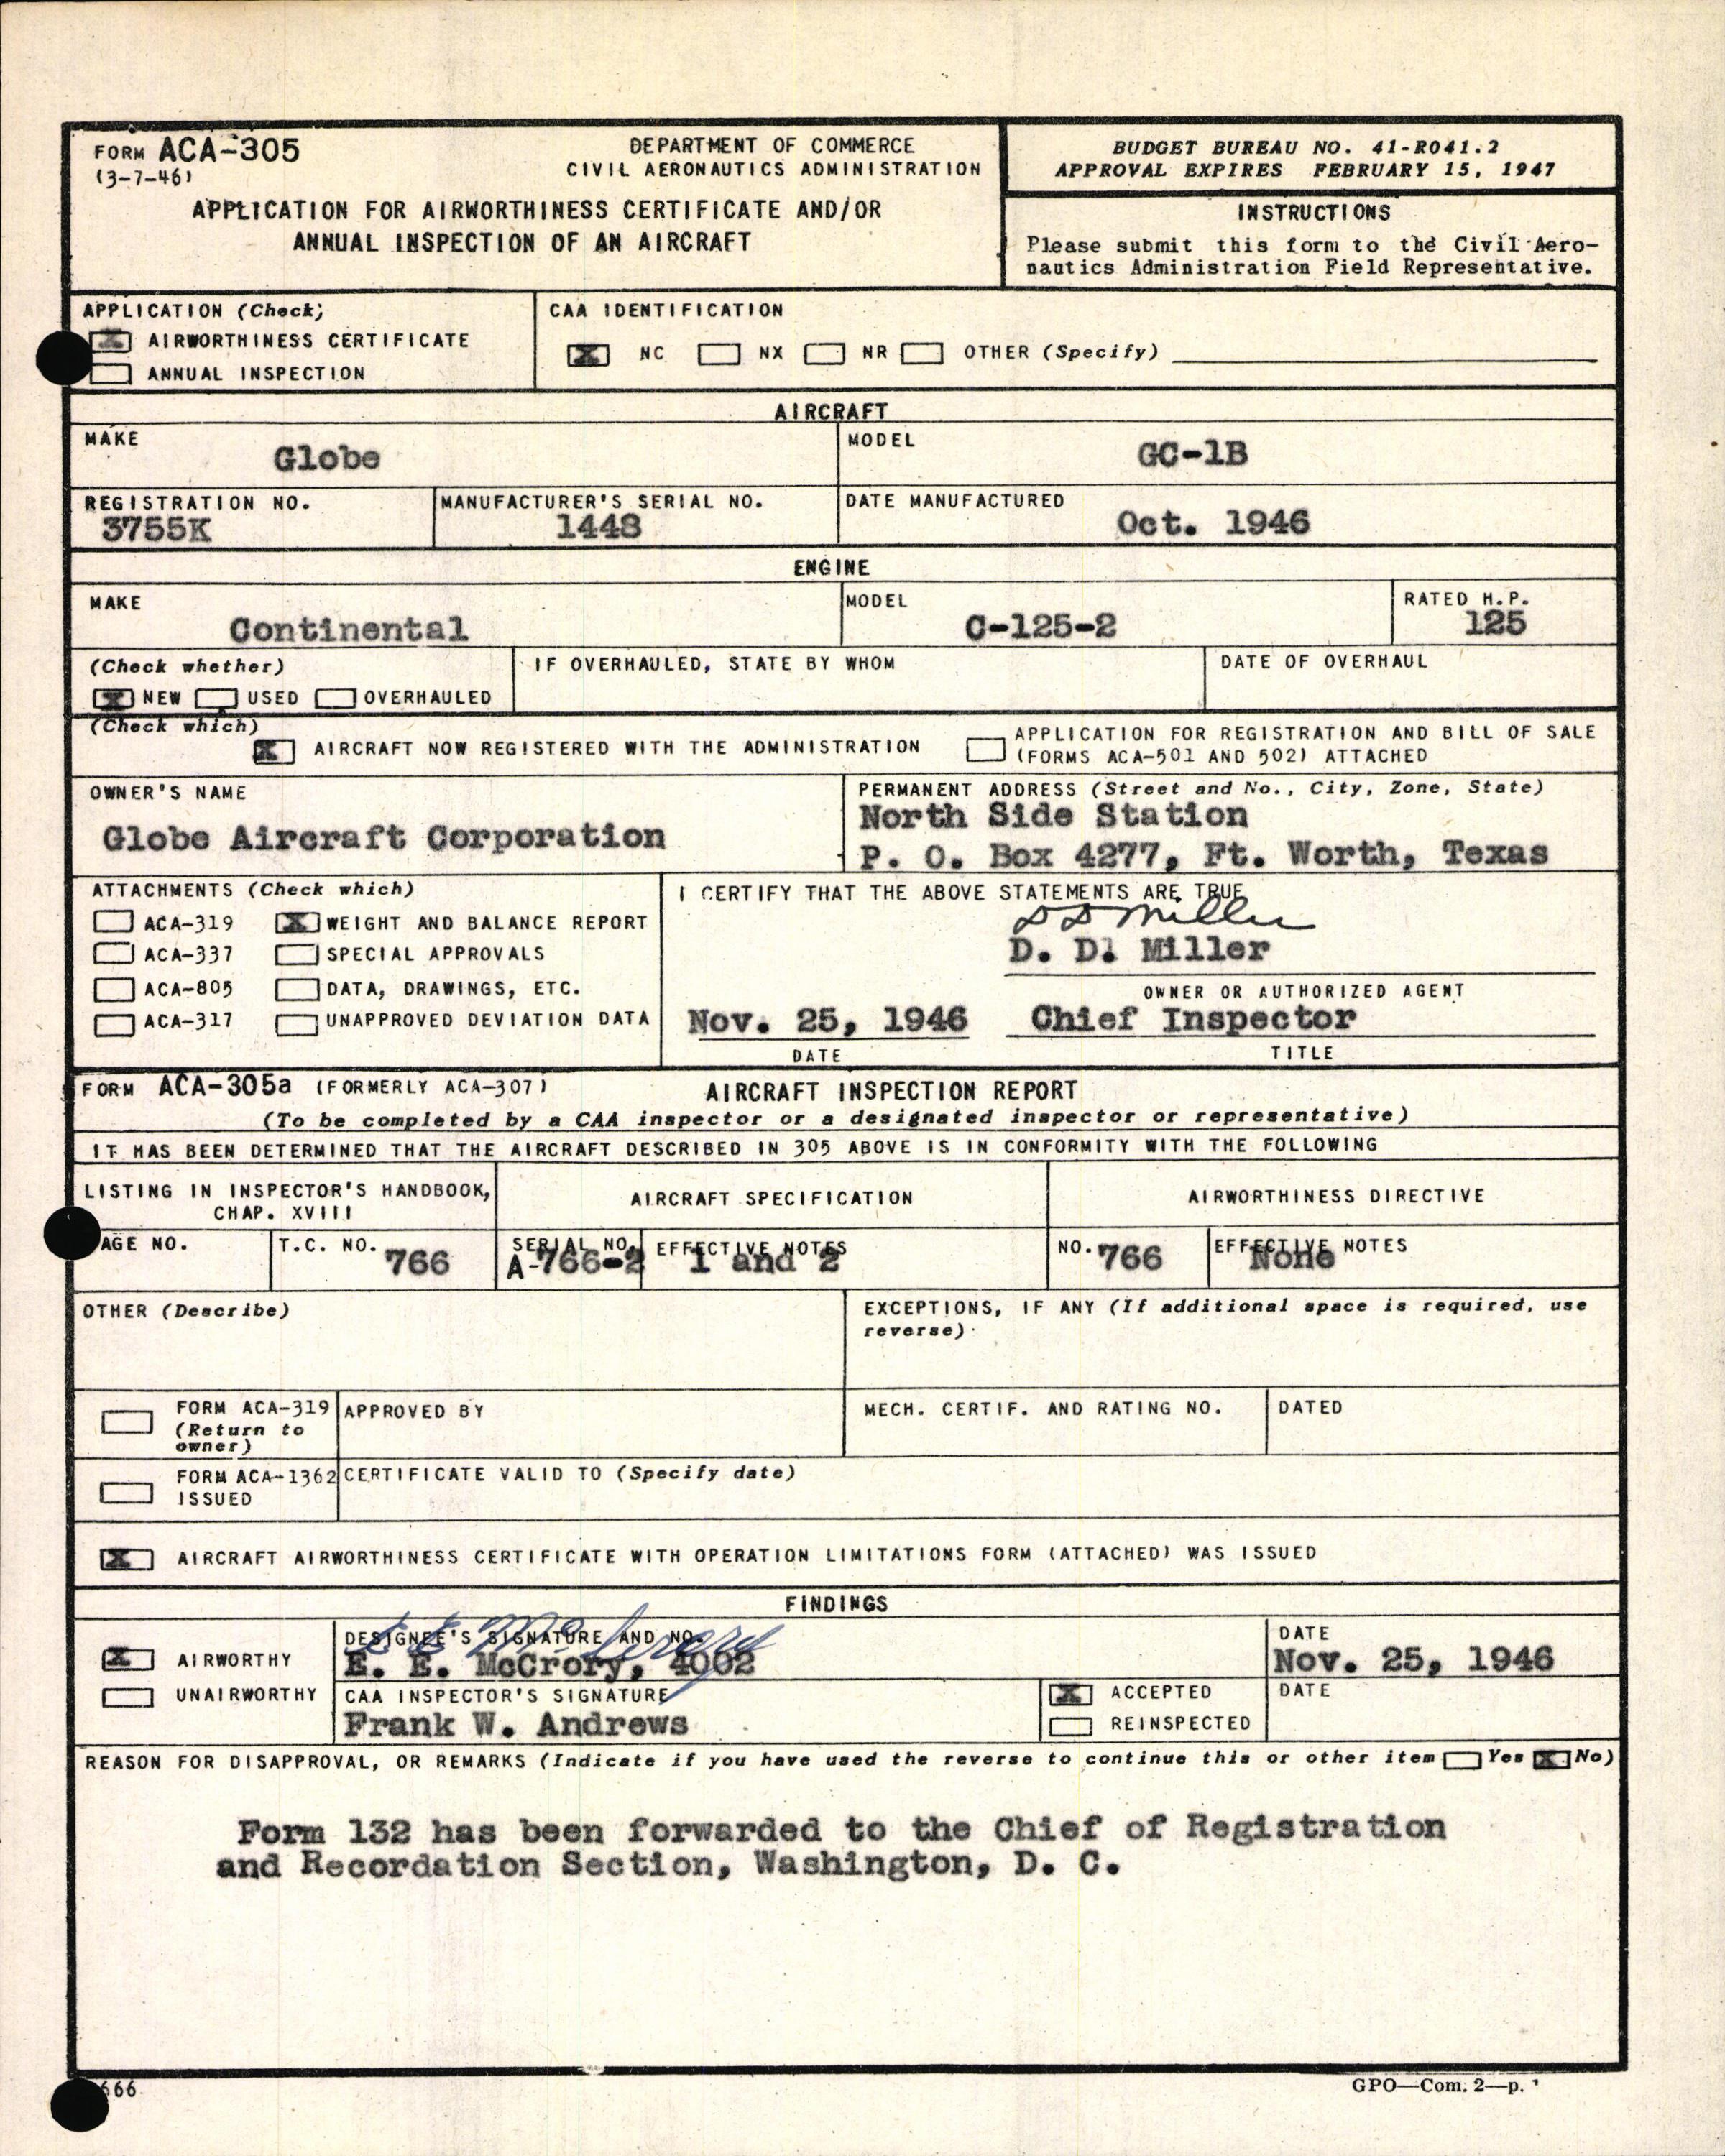 FORM ACA-305
(3-7-46)
DEPARTMENT OF COMMERCE
CIVIL AERONAUTICS ADMINISTRATION
APPLICATION FOR AIRWORTHINESS CERTIFICATE AND/OR
ANNUAL INSPECTION OF AN AIRCRAFT
BUDGET BUREAU NO. 41-R041.2
APPROVAL EXPIRES FEBRUARY 15, 1947
INSTRUCTIONS
Please submit this form to the Civil Aero-
nautics Administration Field Representative.
APPLICATION (Check)
X AIRWORTHINESS CERTIFICATE
ANNUAL INSPECTION
CAA IDENTIFICATION
X NC NX NR OTHER (Specify)
AIRCRAFT
MAKE
Globe
MODEL
GC-1B
REGISTRATION NO.
3755K
MANUFACTURER'S SERIAL NO.
1448
DATE MANUFACTURED
Oct. 1946
ENGINE
MAKE
Continental
MODEL
C-125-2
RATED H.P.
125
(Check whether)
X NEW USED OVERHAULED
IF OVERHAULED, STATE BY WHOM
DATE OF OVERHAUL
(Check which)
X AIRCRAFT NOW REGISTERED WITH THE ADMINISTRATION
APPLICATION FOR REGISTRATION AND BILL OF SALE
(FORMS ACA-501 AND 502) ATTACHED
OWNER'S NAME
Globe Aircraft Corporation
PERMANENT ADDRESS (Street and No., City, Zone, State)
North Side Station
P. O. Box 4277, Ft. Worth, Texas
ATTACHMENTS (Check which)
ACA-319 X WEIGHT AND BALANCE REPORT
ACA-337 SPECIAL APPROVALS
ACA-805 DATA, DRAWINGS, ETC.
ACA-317 UNAPPROVED DEVIATION DATA
I CERTIFY THAT THE ABOVE STATEMENTS ARE TRUE
D D Miller
D. D. Miller
OWNER OR AUTHORIZED AGENT
Nov. 25, 1946 Chief Inspector
DATE TITLE
FORM ACA-305a (FORMERLY ACA-307) AIRCRAFT INSPECTION REPORT
(To be completed by a CAA inspector or a designated inspector or representative)
IT HAS BEEN DETERMINED THAT THE AIRCRAFT DESCRIBED IN 305 ABOVE IS IN CONFORMITY WITH THE FOLLOWING
LISTING IN INSPECTOR'S HANDBOOK,
CHAP. XVIII
AIRCRAFT SPECIFICATION
AIRWORTHINESS DIRECTIVE
AGE NO.
T.C. NO. 766
SERIAL NO.
A-766-2
EFFECTIVE NOTES
1 and 2
NO. 766
EFFECTIVE NOTES
None
OTHER (Describe)
EXCEPTIONS, IF ANY (If additional space is required, use
reverse)
FORM ACA-319
(Return to
owner)
APPROVED BY
MECH. CERTIF. AND RATING NO.
DATED
FORM ACA-1362
ISSUED
CERTIFICATE VALID TO (Specify date)
X AIRCRAFT AIRWORTHINESS CERTIFICATE WITH OPERATION LIMITATIONS FORM (ATTACHED) WAS ISSUED
FINDINGS
X AIRWORTHY
UNAIRWORTHY
DESIGNEE'S SIGNATURE AND NO.
E E McCrory
E. E. McCrory, 4002
DATE
Nov. 25, 1946
CAA INSPECTOR'S SIGNATURE
Frank W. Andrews
X ACCEPTED
REINSPECTED
DATE
REASON FOR DISAPPROVAL, OR REMARKS (Indicate if you have used the reverse to continue this or other item Yes X No)
Form 132 has been forwarded to the Chief of Registration
and Recordation Section, Washington, D. C.
666
GPO—Com. 2—p.